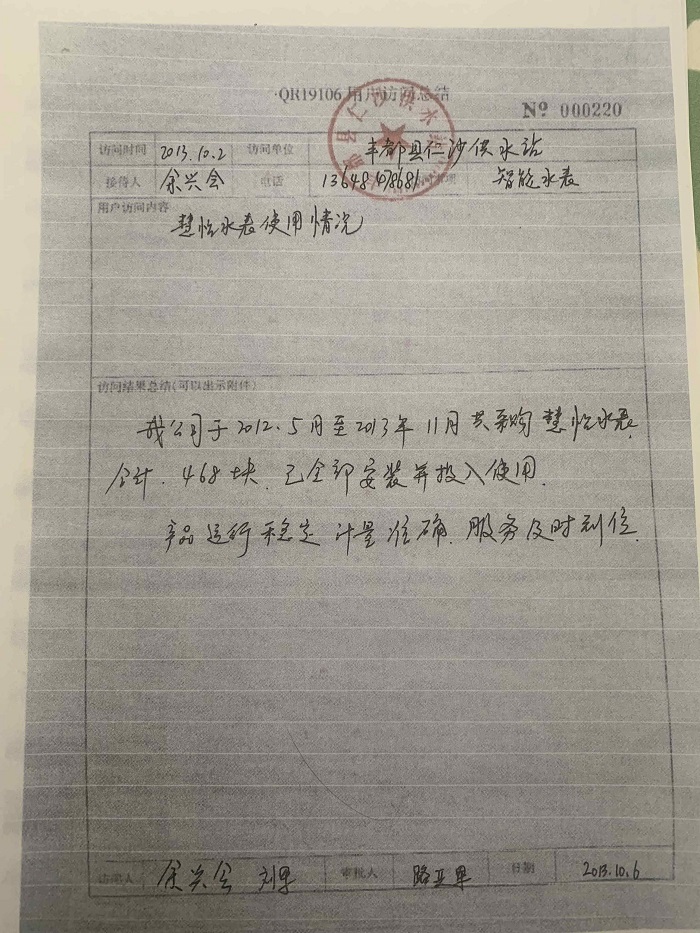 QR19106 用户访问总结
Nº 000220
访问时间 2013.10.2 访问单位 丰都县仁沙供水站
接待人 余兴会 电话 13648478681 智能水表
用户访问内容
慧怡水表使用情况
访问结果总结(可以出示附件)
我公司于2012.5月至2013年11月共采购慧怡水表,
合计.468块.已全部安装并投入使用.
产品运行稳定 计量准确.服务及时到位.
访问人 余兴会 刘军 审批人 日期 2013.10.6